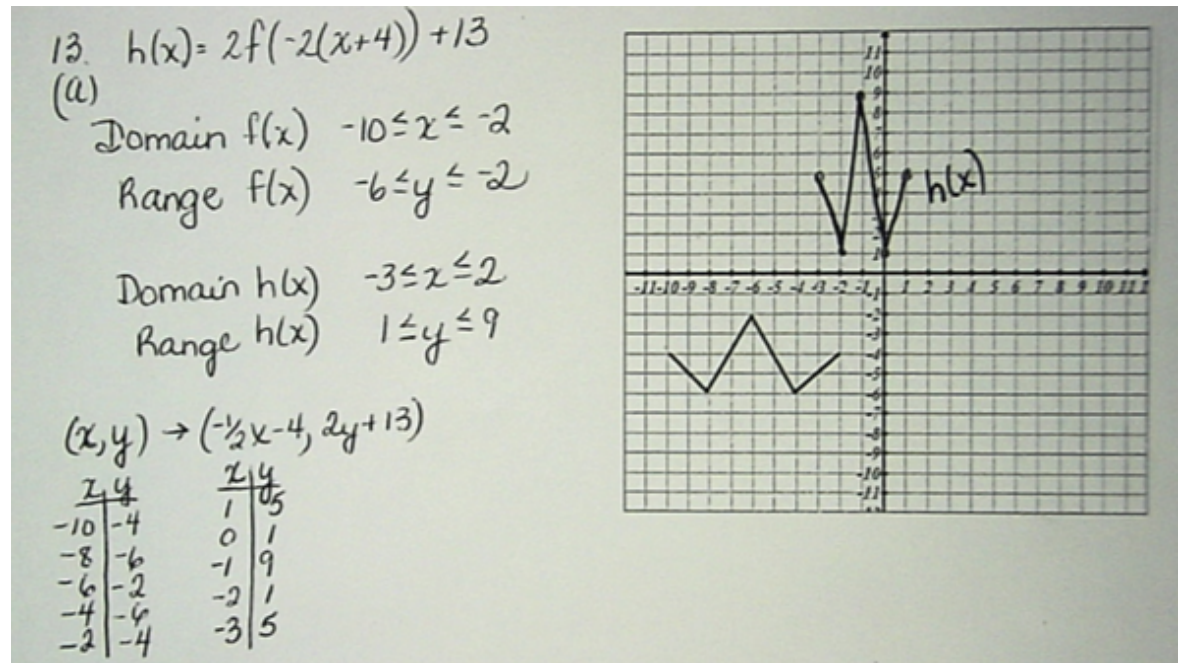 13. h(x) = 2f(-2(x+4)) + 13
(a)
Domain f(x) -10 ≤ x ≤ -2
Range f(x) -6 ≤ y ≤ -2
Domain h(x) -3 ≤ x ≤ 2
Range h(x) 1 ≤ y ≤ 9
(x, y) → (-1/2x - 4, 2y + 13)
x y
-10 -4
-8 -6
-6 -2
-4 -6
-2 -4
x y
1 5
0 1
-1 9
-2 1
-3 5
11
10
9
8
7
6
5
h(x)
1
-11 -10 -9 -8 -7 -6 -5 -4 -3 -2 -1 1 2 3 4 5 6 7 8 9 10 11 1
-1
-2
-3
-4
-5
-6
-7
-8
-9
-10
-11